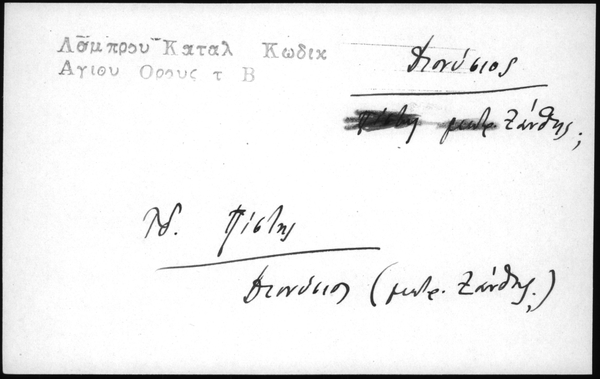 Λάμπρου Καταλ Κωδικ
Αγιου Ορους τ Β
Διονύσιος
Πίστης μητρ. Ξάνθης;
Ἰδ. Πίστης
Διονύσιος (μητρ. Ξάνθης;)